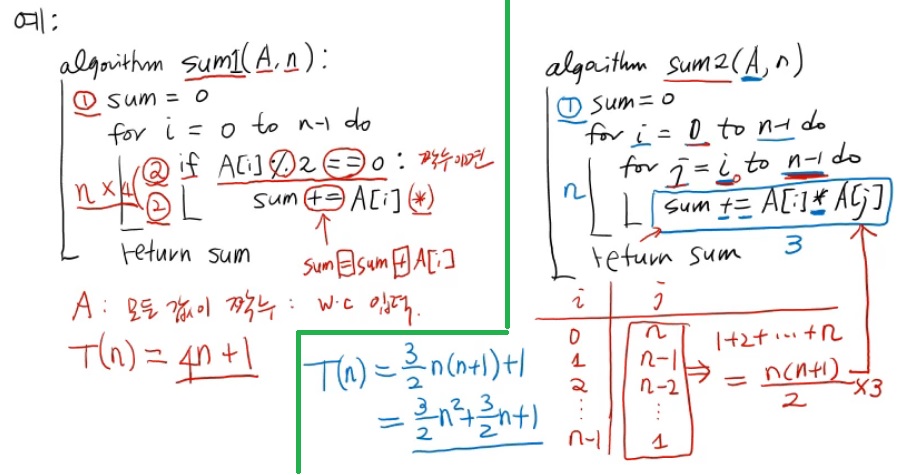 예:
algorithm sum1(A, n):
① sum = 0
for i = 0 to n-1 do
② if A[i] % 2 == 0 : 짝수이면
n × 4
② sum += A[i] (*)
return sum
sum = sum + A[i]
A : 모든 값이 짝수 : W.C 입력.
T(n) = 4n + 1
algorithm sum2(A, n)
① sum = 0
for i = 0 to n-1 do
for j = i to n-1 do
n
sum += A[i] * A[j]
3
return sum
i j
0 n
1 n-1
2 n-2
⋮ ⋮
n-1 1
⇒ 1+2+ ... +n
= n(n+1)/2 ×3
T(n) = 3/2 n(n+1)+1
= 3/2 n² + 3/2 n + 1